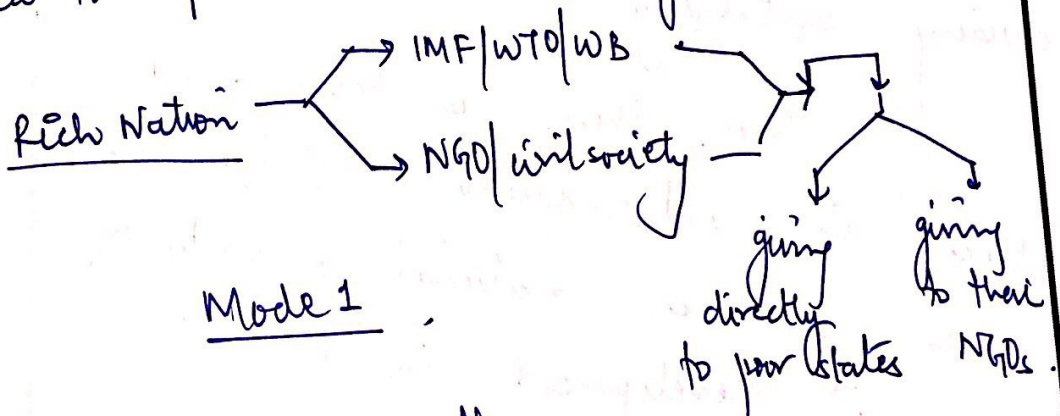 IMF/WTO/WB
Rich Nation
NGO/civil society
giving
directly
to poor states
giving
to their
NGOs.
Mode 1